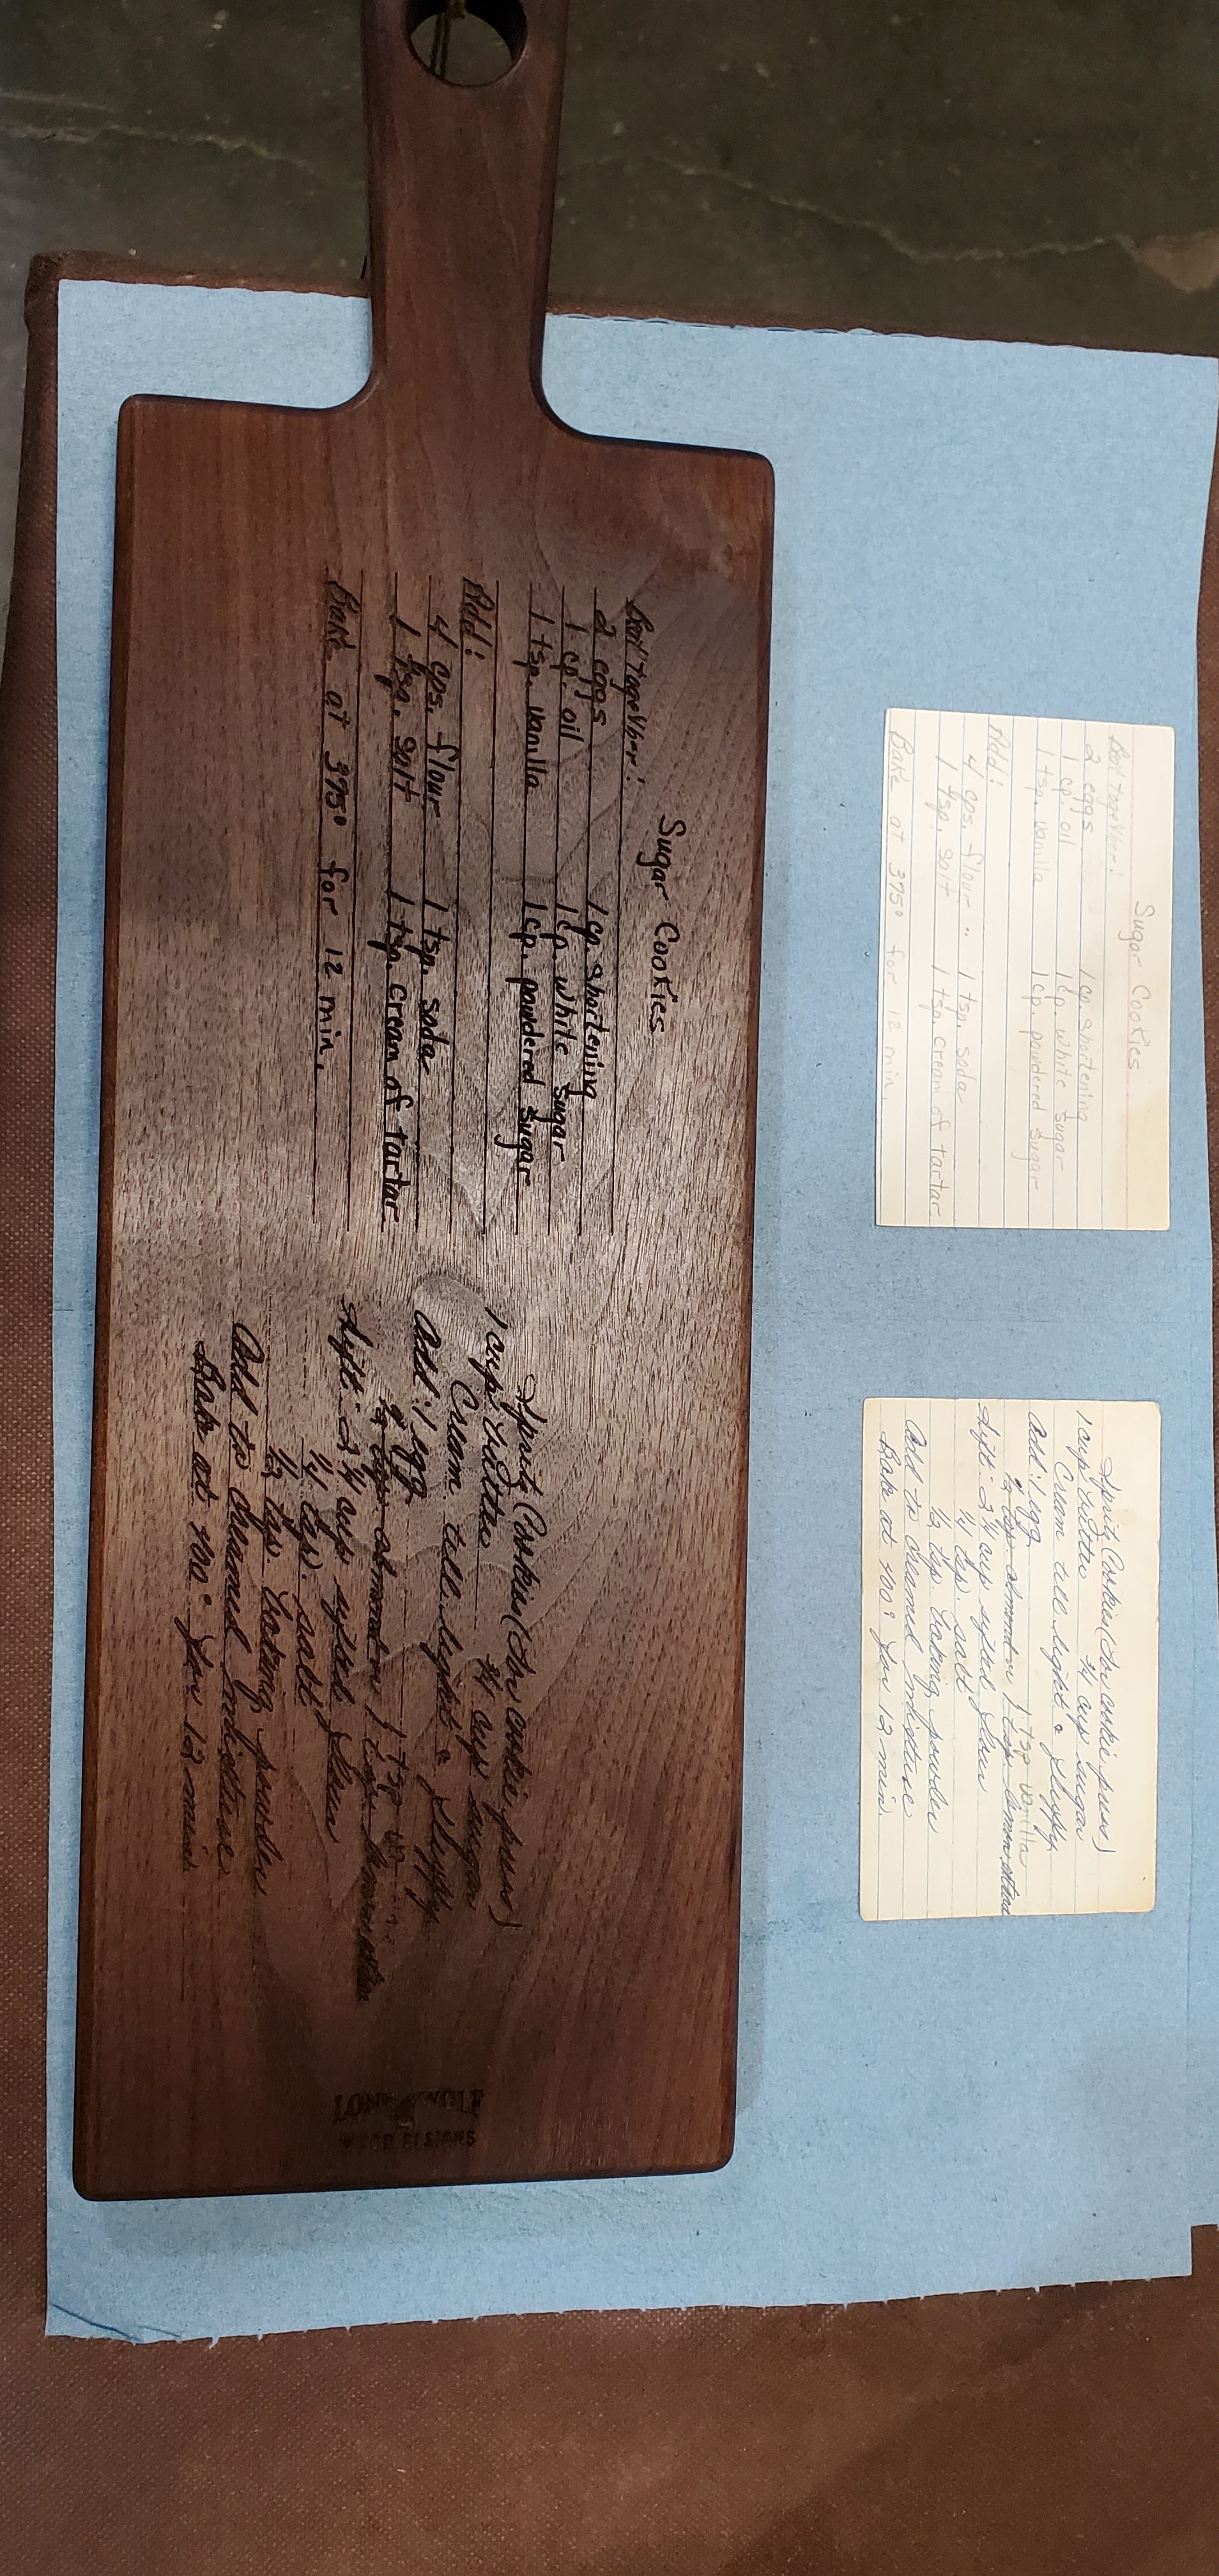 Sugar Cookies
Beat Together:
2 eggs 1 cp. shortening
1 cp. oil 1 cp. white sugar
1 tsp. vanilla 1 cp. powdered sugar
Add:
4 cps. flour 1 tsp. soda
1 tsp. salt 1 tsp. cream of tartar
Bake at 375° for 12 min.
Spritz Cookies (for cookie press)
1 cup butter 3/4 cup sugar
Cream till light & fluffy
Add: 1 egg
almond or 1 tsp
1 tsp. lemon
Sift: 2 1/4 cup sifted flour
1/4 tsp. salt
1/2 tsp. baking powder
Add to creamed mixture
Bake at 400° for 12 min.
LONE WOLF
WOOD DESIGNS
Sugar Cookies
Beat Together:
2 eggs 1 cp. shortening
1 cp. oil 1 cp. white sugar
1 tsp. vanilla 1 cp. powdered sugar
Add:
4 cps. flour 1 tsp. soda
1 tsp. salt 1 tsp. cream of tartar
Bake at 375° for 12 min.
Spritz Cookies (for cookie press)
1 cup butter 3/4 cup sugar
Cream till light & fluffy
Add: 1 egg 1 tsp vanilla
1/2 tsp almond or 1 tsp. lemon
Sift: 2 1/4 cup sifted flour
1/4 tsp. salt
1/2 tsp. baking powder
Add to creamed mixture
Bake at 400° for 12 min.